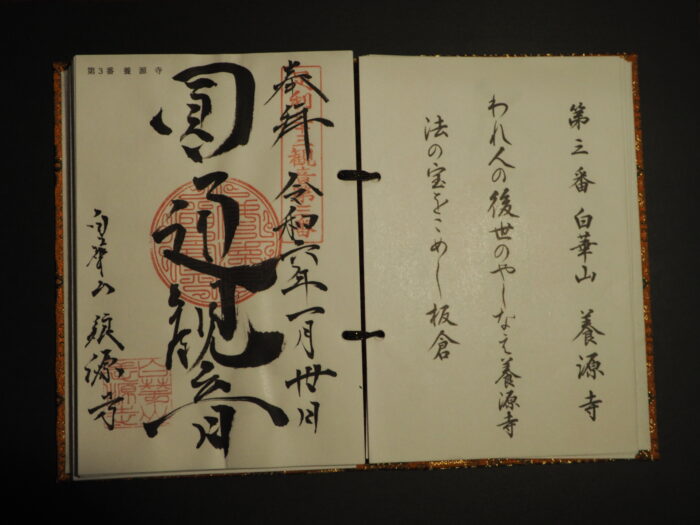 第三番 白華山 養源寺
われ人の後世のやしなえ養源寺
法の宝をこめし板倉
第3番 養源寺
奉拝 令和六年一月廿日
圓通観音
白華山 養源寺